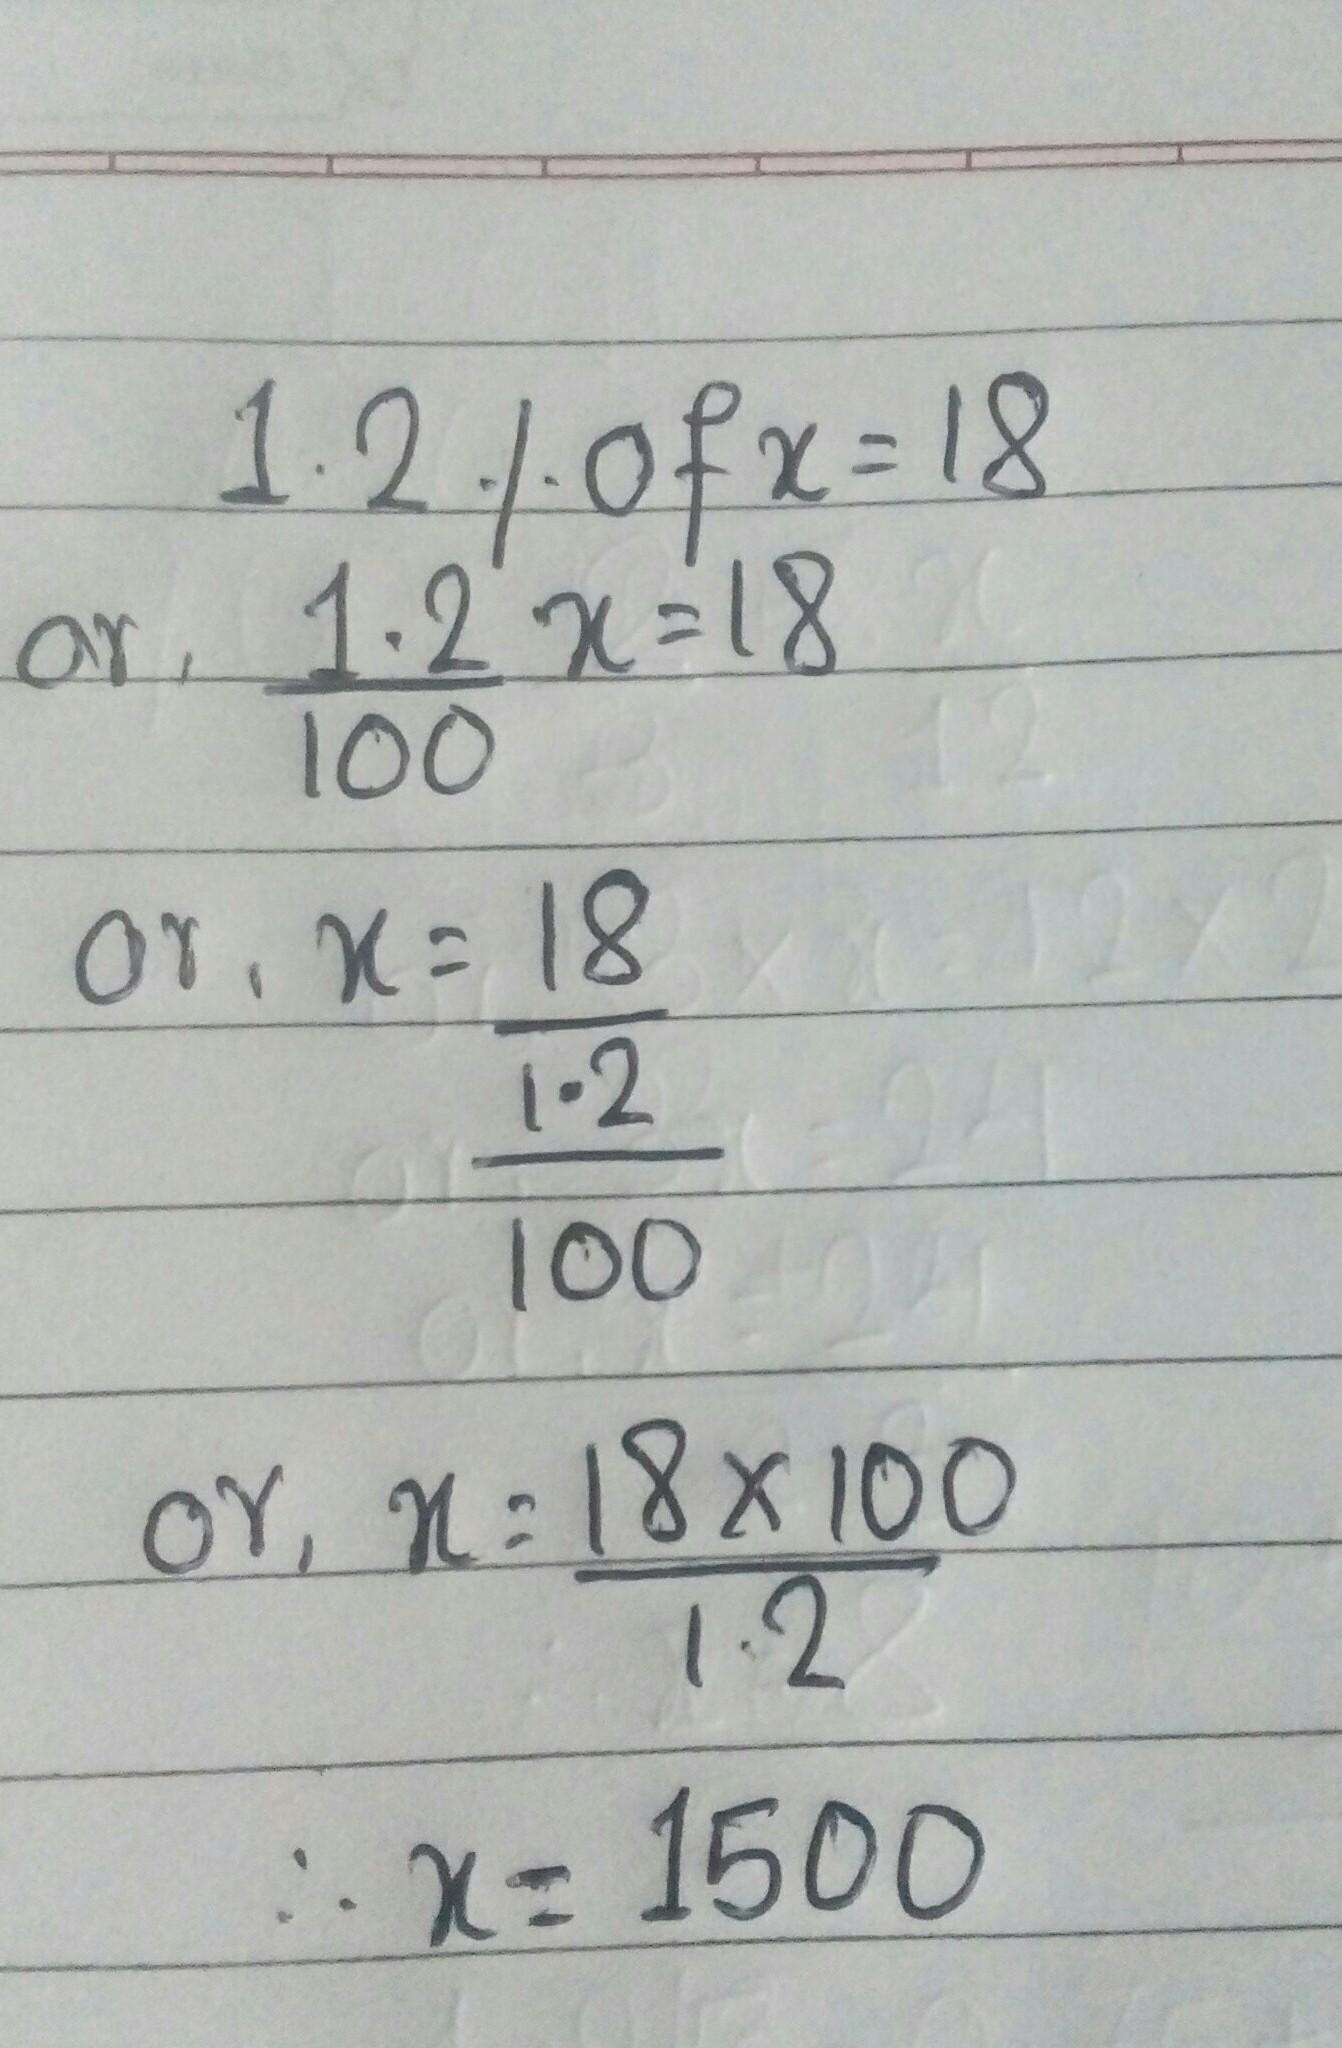 1.2 % of x = 18
or, 1.2 x = 18
100
or, x = 18
1.2
100
or, x = 18 x 100
1.2
∴ x = 1500